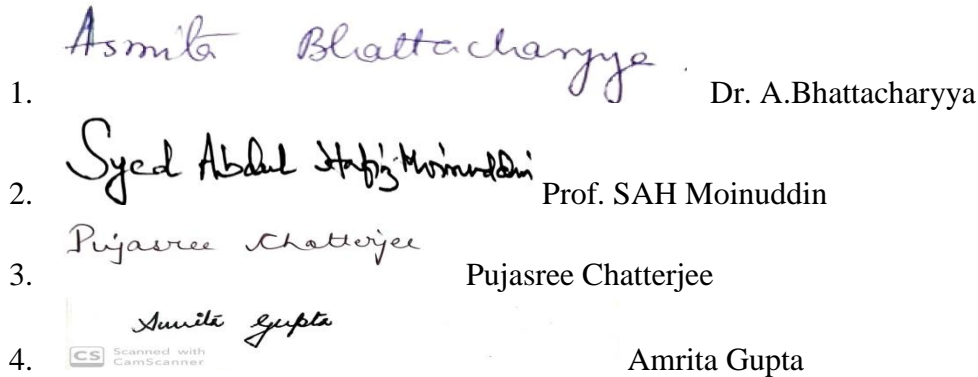 Asmita Bhattacharyya.
1. Dr. A.Bhattacharyya
Syed Abdul Hafiz Moinuddin
2. Prof. SAH Moinuddin
Pujasree Chatterjee
3. Pujasree Chatterjee
Amrita Gupta
CS Scanned with CamScanner
4. Amrita Gupta